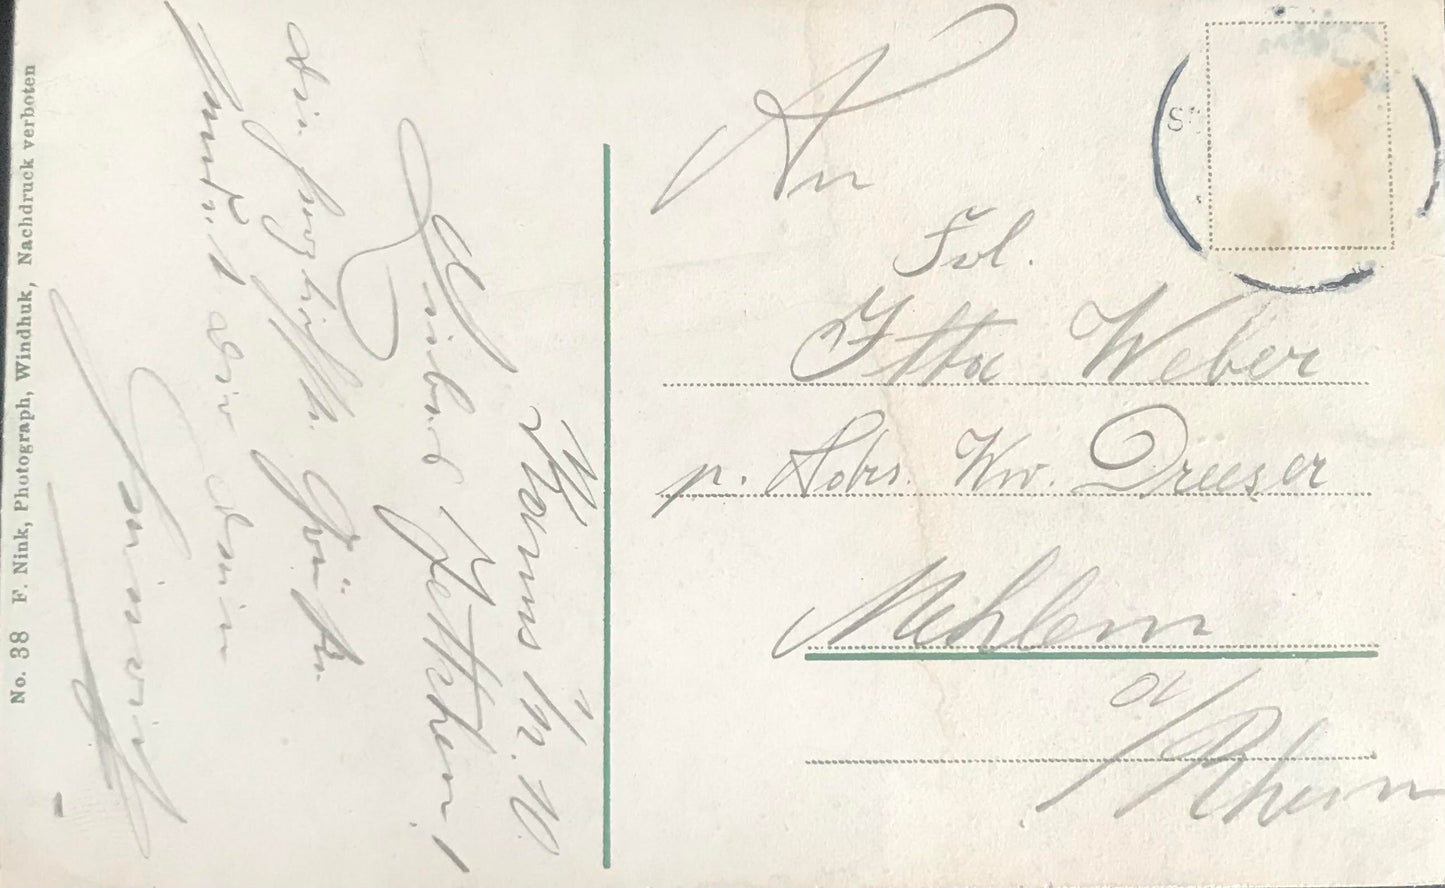 No. 38 F. Nink, Photograph, Windhuk, Nachdruck verboten
Liebes Jettchen!
Die herzlichsten Grüße
sendet dir dein
Heinrich
An
Frl.
Weber
p. Adrs. Ww. Dreeser
Mehlem
a/Rhein